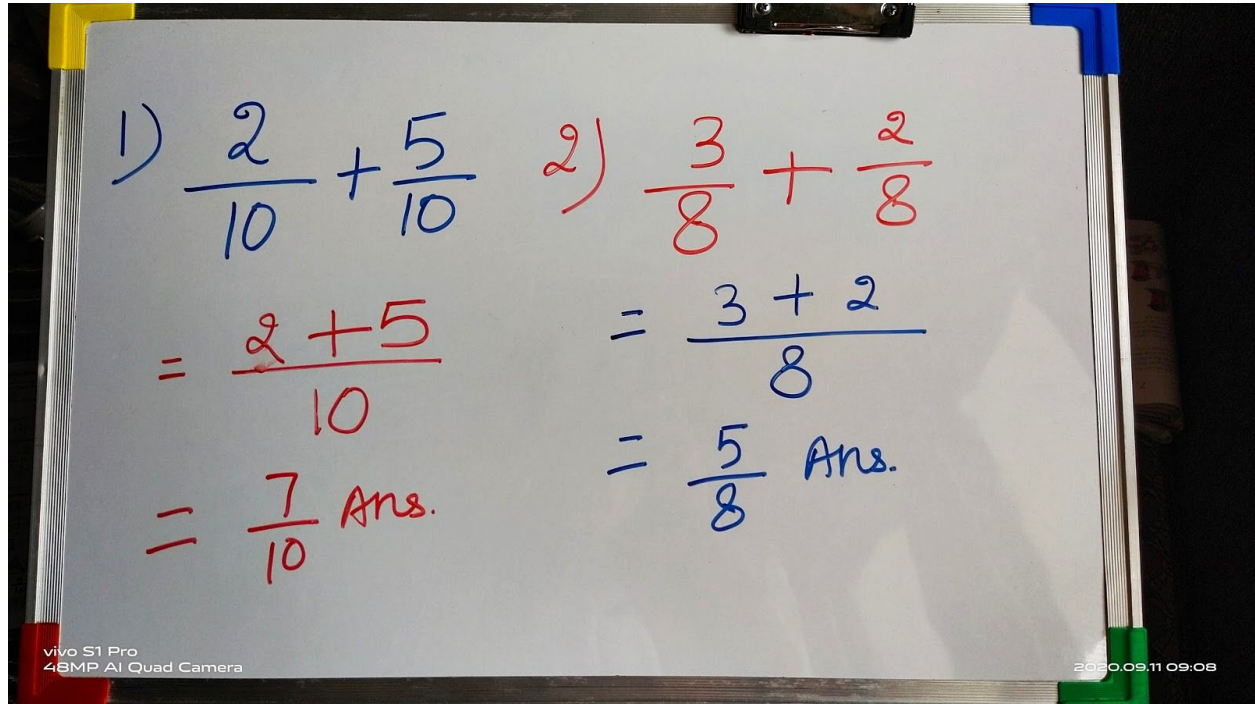 1) 2/10 + 5/10
= 2 + 5/10
= 7/10 Ans.
2) 3/8 + 2/8
= 3 + 2/8
= 5/8 Ans.
vivo S1 Pro
48MP AI Quad Camera
2020.09.11 09:08